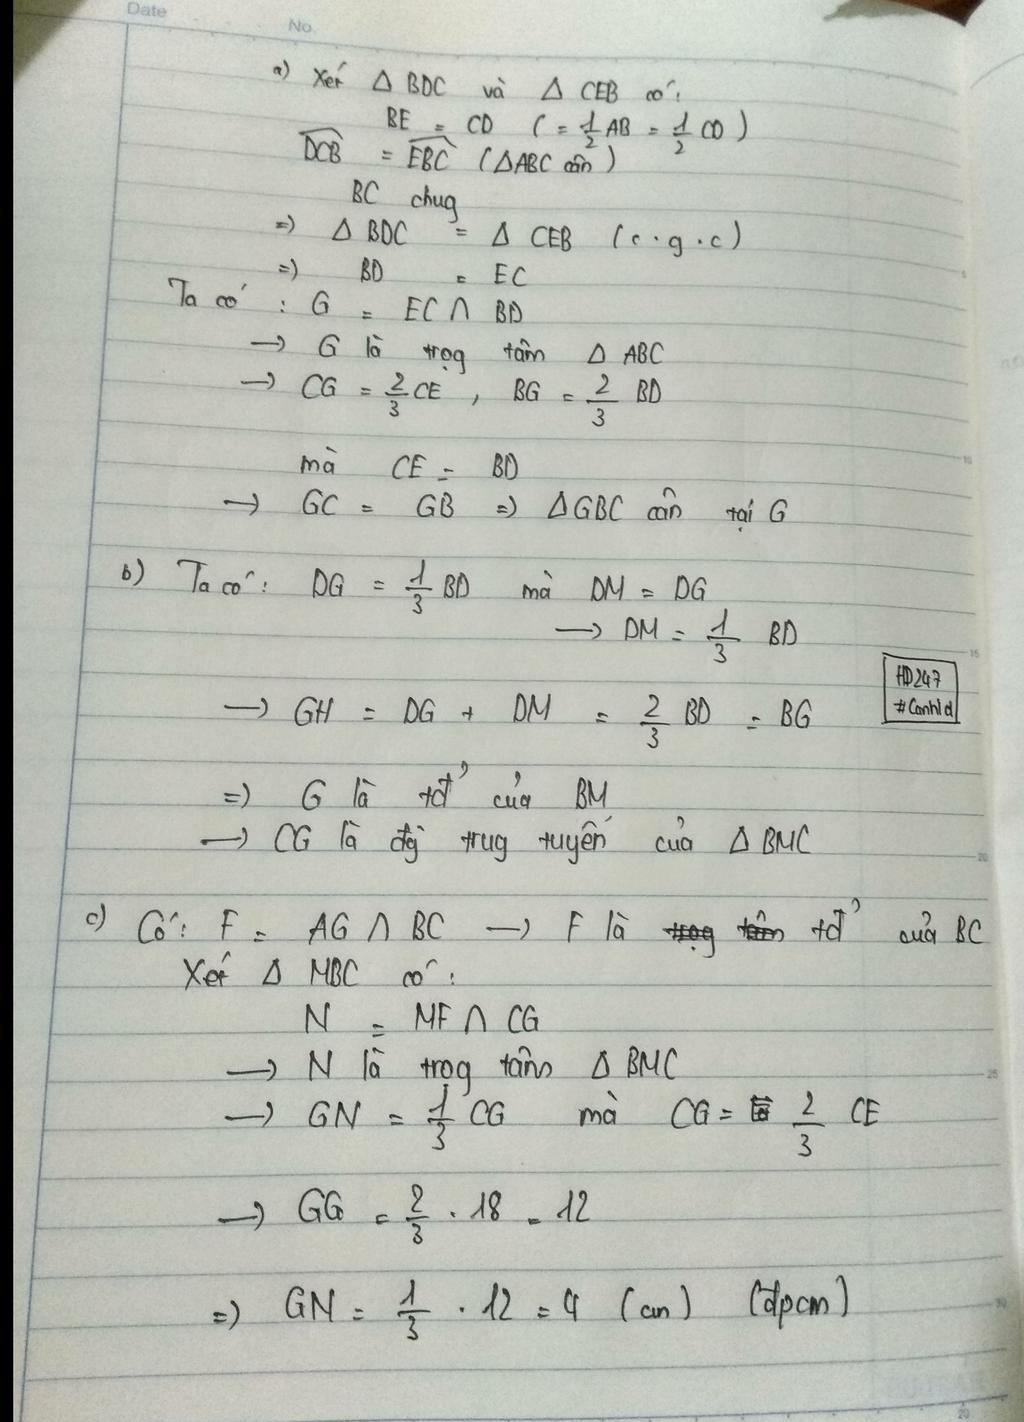 Date
No.
a) Xét Δ BDC và Δ CEB có:
BE = CD (= 1/2 AB = 1/2 CD)
DCB = EBC (ΔABC cân)
BC chug
=> Δ BDC = Δ CEB (c.g.c)
=> BD = EC
Ta có : G = EC ∩ BD
→ G là trọg tâm Δ ABC
→ CG = 2/3 CE , BG = 2/3 BD
mà CE = BD
→ GC = GB => ΔGBC cân tại G
b) Ta có: DG = 1/3 BD mà DM = DG
→ DM = 1/3 BD
HD247
→ GH = DG + DM = 2/3 BD = BG
=> G là tđ' của BM
→ CG là đg trug tuyến của Δ BMC
c) Có: F = AG ∩ BC → F là trọg tâm tđ' của BC
Xét Δ MBC có:
N = MF ∩ CG
→ N là trọg tâm Δ BMC
→ GN = 1/3 CG mà CG = 2/3 CE
→ GG = 2/3 . 18 = 12
=> GN = 1/3 . 12 = 4 (cm) (đpcm)